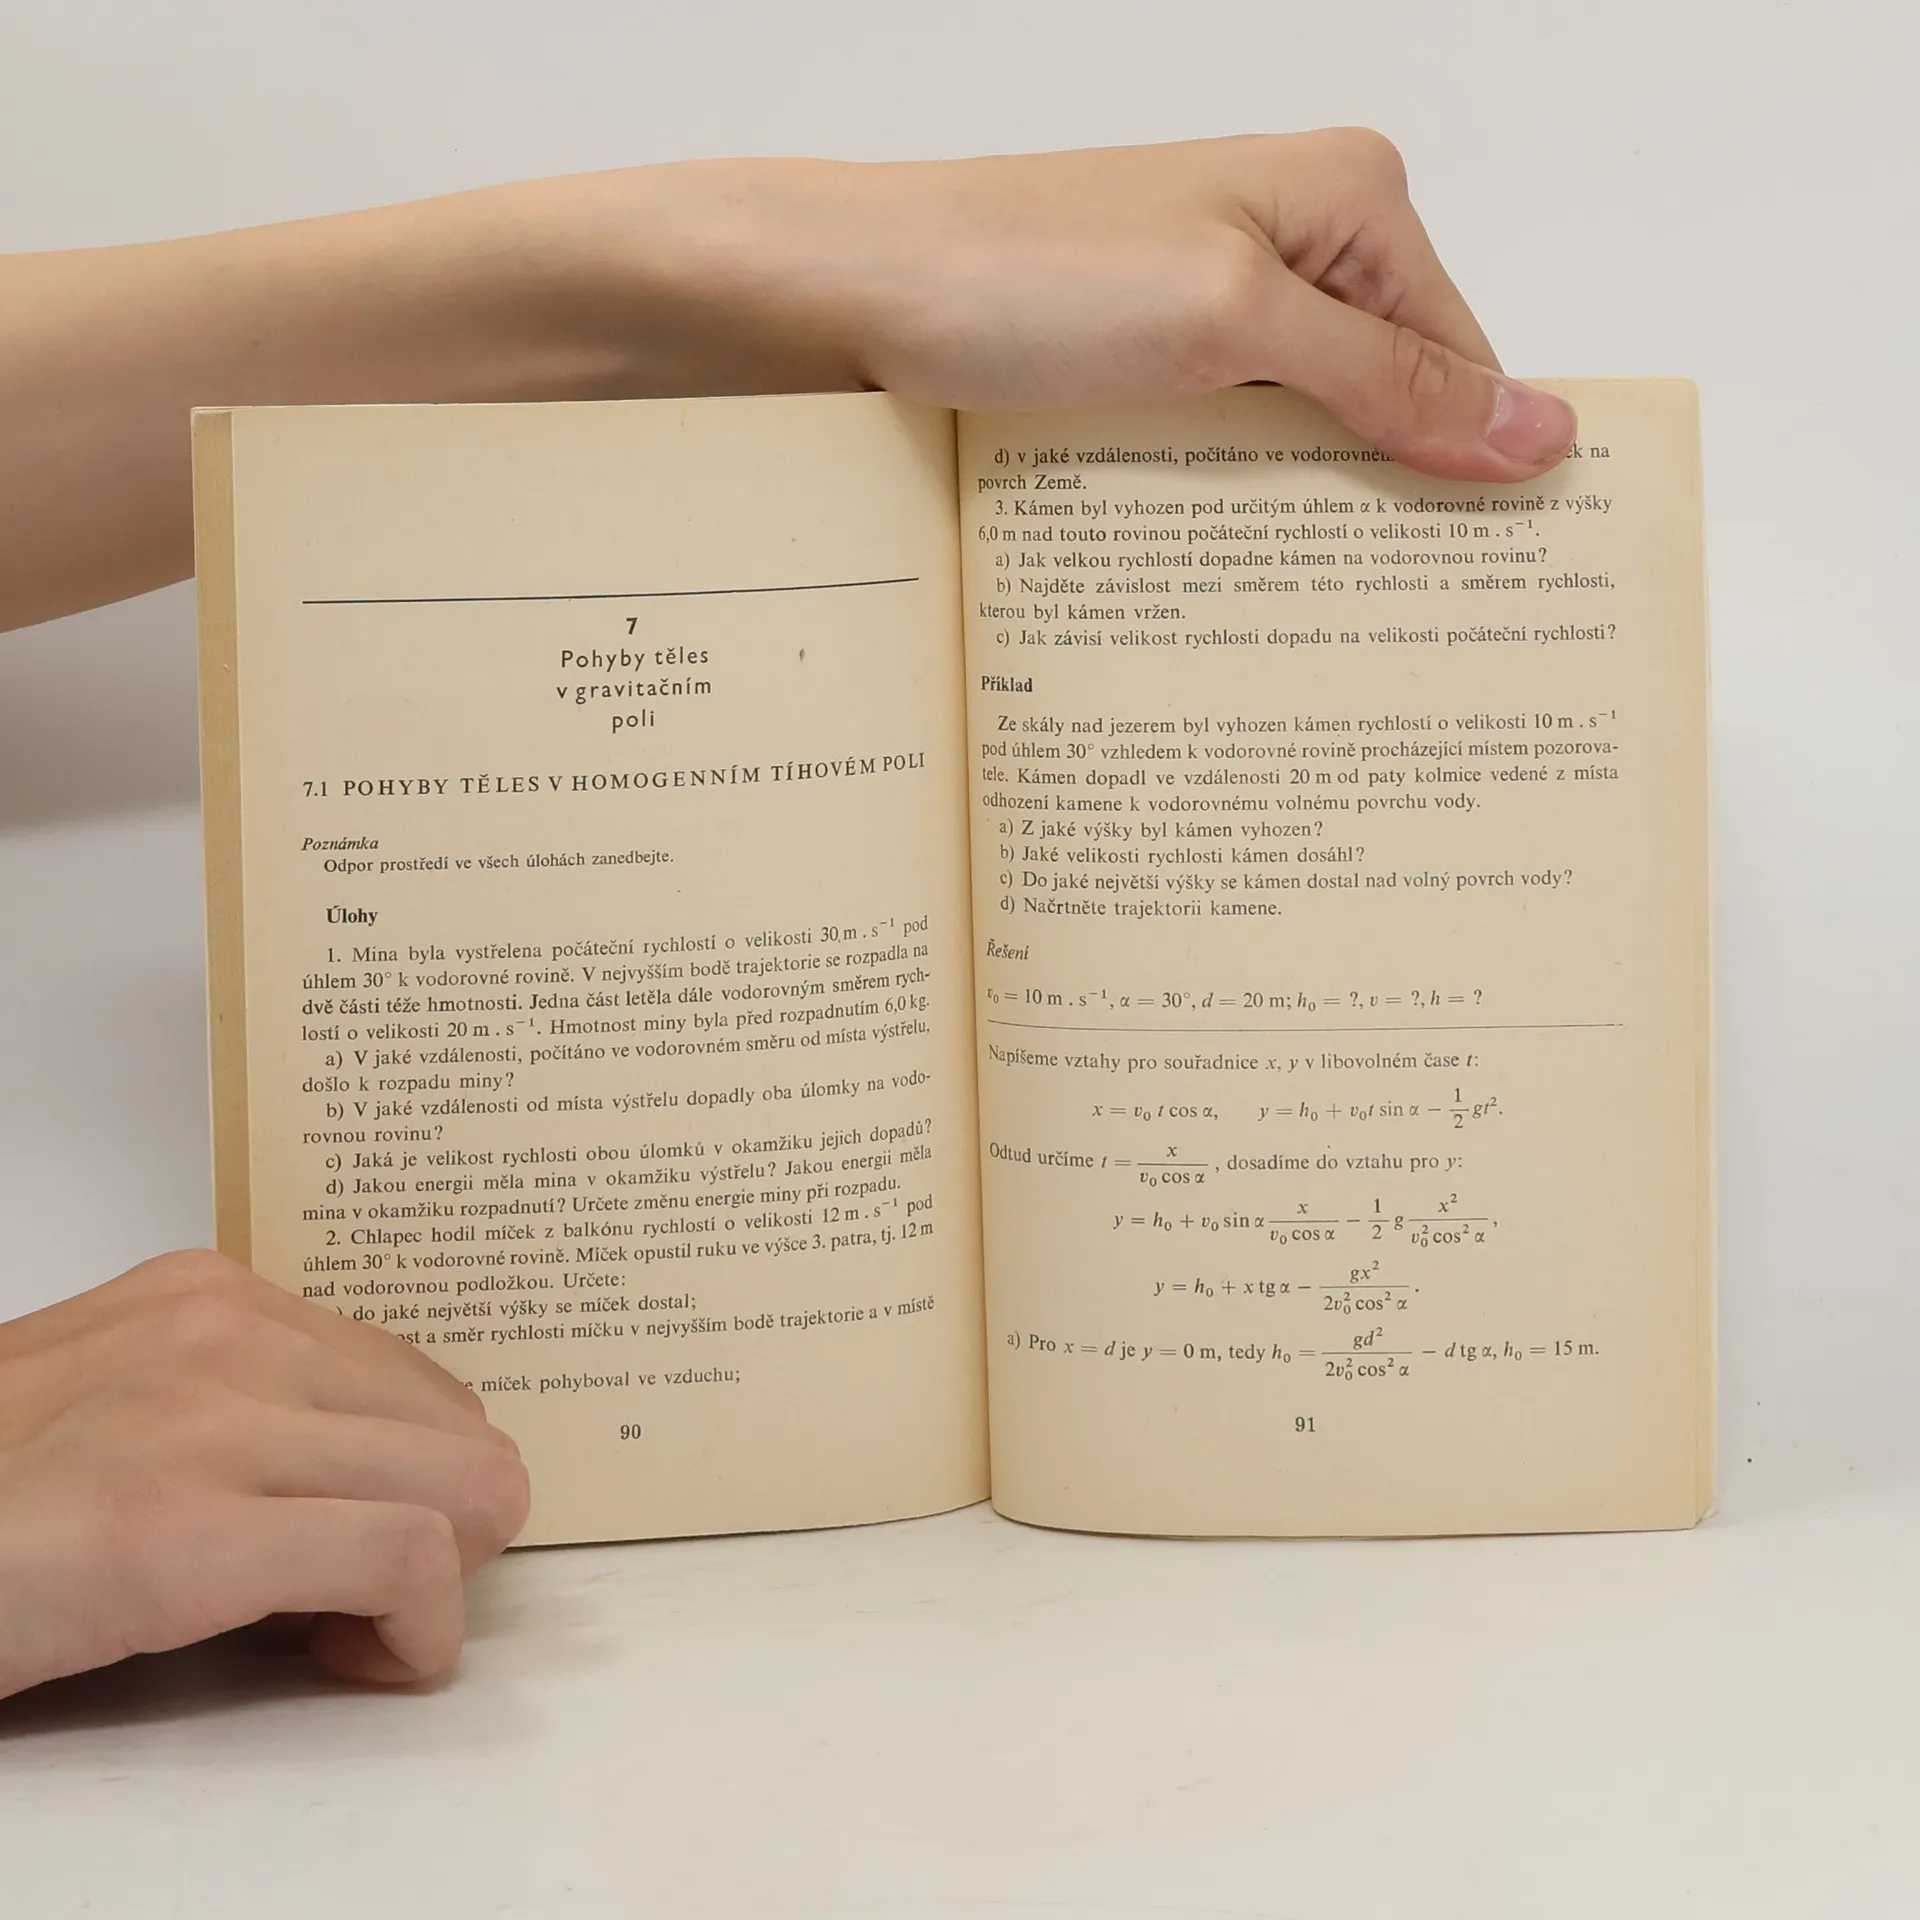 7
Pohyby těles
v gravitačním
poli
7.1 POHYBY TĚLES V HOMOGENNÍM TÍHOVÉM POLI
Poznámka
Odpor prostředí ve všech úlohách zanedbejte.
Úlohy
1. Mina byla vystřelena počáteční rychlostí o velikosti 30 m . s⁻¹ pod
úhlem 30° k vodorovné rovině. V nejvyšším bodě trajektorie se rozpadla na
dvě části téže hmotnosti. Jedna část letěla dále vodorovným směrem rych-
lostí o velikosti 20 m . s⁻¹. Hmotnost miny byla před rozpadnutím 6,0 kg.
a) V jaké vzdálenosti, počítáno ve vodorovném směru od místa výstřelu,
došlo k rozpadu miny?
b) V jaké vzdálenosti od místa výstřelu dopadly oba úlomky na vodo-
rovnou rovinu?
c) Jaká je velikost rychlosti obou úlomků v okamžiku jejich dopadů?
d) Jakou energii měla mina v okamžiku výstřelu? Jakou energii měla
mina v okamžiku rozpadnutí? Určete změnu energie miny při rozpadu.
2. Chlapec hodil míček z balkónu rychlostí o velikosti 12 m . s⁻¹ pod
úhlem 30° k vodorovné rovině. Míček opustil ruku ve výšce 3. patra, tj. 12 m
nad vodorovnou podložkou. Určete:
do jaké největší výšky se míček dostal;
a směr rychlosti míčku v nejvyšším bodě trajektorie a v místě
míček pohyboval ve vzduchu;
90
d) v jaké vzdálenosti, počítáno ve vodorovném na
povrch Země.
3. Kámen byl vyhozen pod určitým úhlem α k vodorovné rovině z výšky
6,0 m nad touto rovinou počáteční rychlostí o velikosti 10 m . s⁻¹.
a) Jak velkou rychlostí dopadne kámen na vodorovnou rovinu?
b) Najděte závislost mezi směrem této rychlosti a směrem rychlosti,
kterou byl kámen vržen.
c) Jak závisí velikost rychlosti dopadu na velikosti počáteční rychlosti?
Příklad
Ze skály nad jezerem byl vyhozen kámen rychlostí o velikosti 10 m . s⁻¹
pod úhlem 30° vzhledem k vodorovné rovině procházející místem pozorova-
tele. Kámen dopadl ve vzdálenosti 20 m od paty kolmice vedené z místa
odhození kamene k vodorovnému volnému povrchu vody.
a) Z jaké výšky byl kámen vyhozen?
b) Jaké velikosti rychlosti kámen dosáhl?
c) Do jaké největší výšky se kámen dostal nad volný povrch vody?
d) Načrtněte trajektorii kamene.
Řešení
v₀ = 10 m . s⁻¹, α = 30°, d = 20 m; h₀ = ?, v = ?, h = ?
Napíšeme vztahy pro souřadnice x, y v libovolném čase t:
x = v₀ t cos α, y = h₀ + v₀t sin α − 1/2 gt².
Odtud určíme t = x/(v₀ cos α), dosadíme do vztahu pro y:
y = h₀ + v₀ sin α x/(v₀ cos α) − 1/2 g x²/(v₀² cos² α),
y = h₀ + x tg α − gx²/(2v₀² cos² α).
a) Pro x = d je y = 0 m, tedy h₀ = gd²/(2v₀² cos² α) − d tg α, h₀ = 15 m.
91